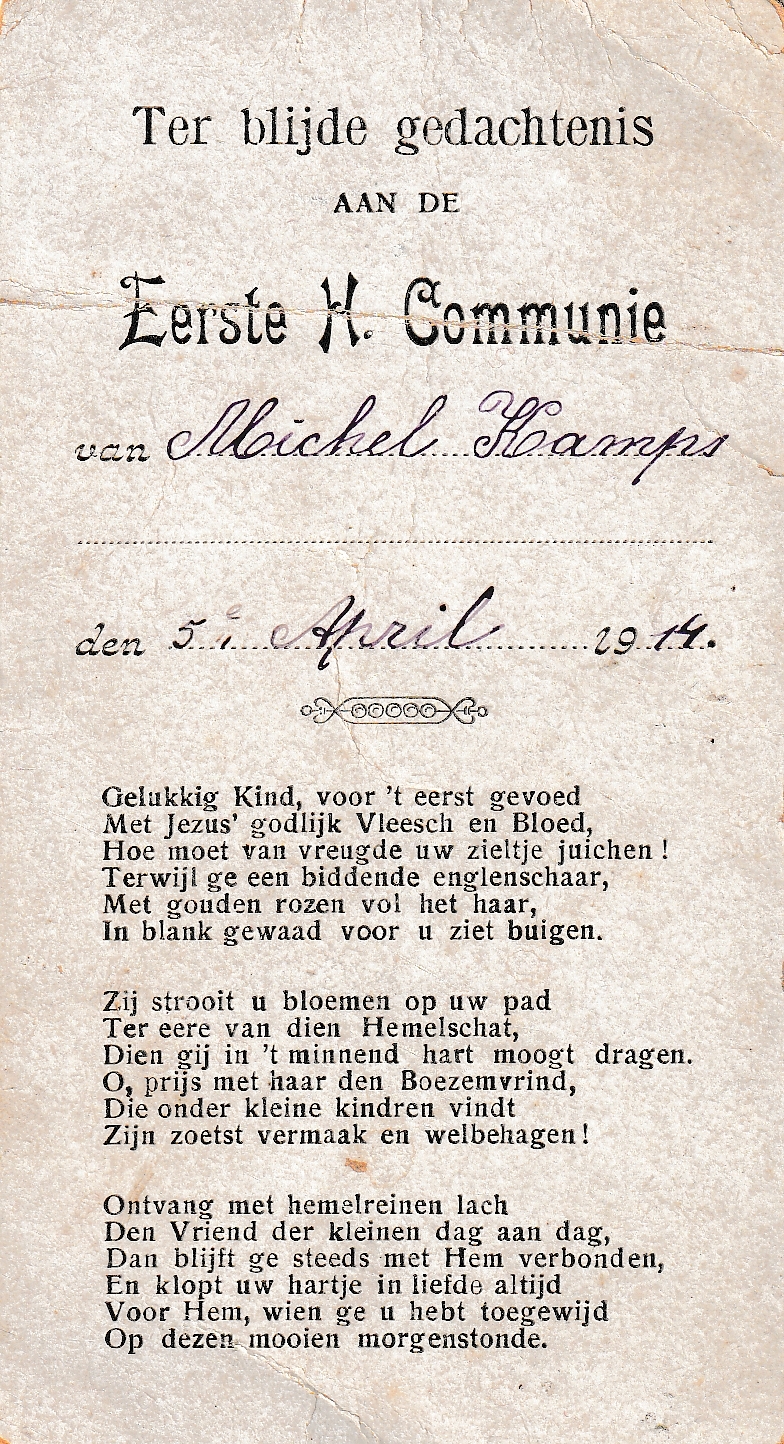 Ter blijde gedachtenis
AAN DE
Eerste H. Communie
van Michel Kamps
den 5e April 1914.
Gelukkig Kind, voor 't eerst gevoed
Met Jezus' godlijk Vleesch en Bloed,
Hoe moet van vreugde uw zieltje juichen !
Terwijl ge een biddende englenschaar,
Met gouden rozen vol het haar,
In blank gewaad voor u ziet buigen.
Zij strooit u bloemen op uw pad
Ter eere van dien Hemelschat,
Dien gij in 't minnend hart moogt dragen.
O, prijs met haar den Boezemvrind,
Die onder kleine kindren vindt
Zijn zoetst vermaak en welbehagen !
Ontvang met hemelreinen lach
Den Vriend der kleinen dag aan dag,
Dan blijft ge steeds met Hem verbonden,
En klopt uw hartje in liefde altijd
Voor Hem, wien ge u hebt toegewijd
Op dezen mooien morgenstonde.